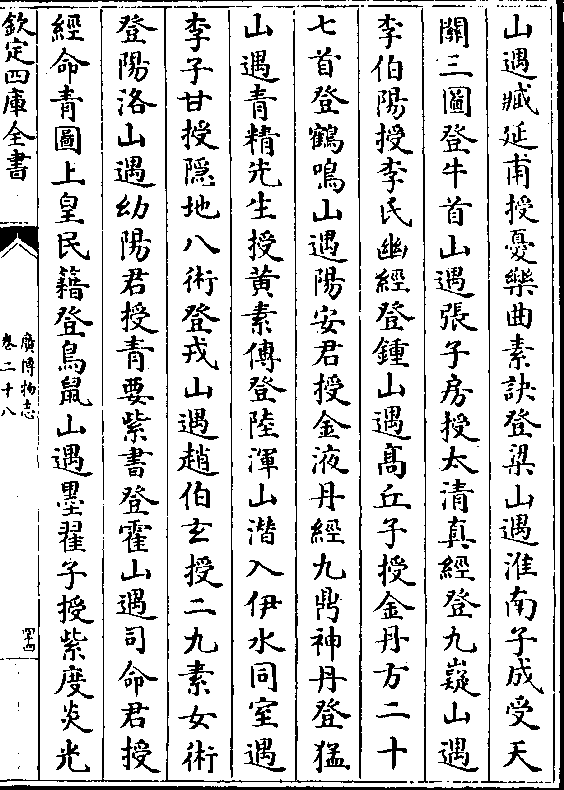 山遇臧延甫授憂樂曲素訣登梁山遇淮南子成受天
關三圖登牛首山遇張子房授太清真經登九嶷山遇
李伯陽授李氏幽經登鍾山遇髙丘子授金丹方二十
七首登鶴鳴山遇陽安君授金液丹經九鼎神丹登猛
山遇青精先生授黃素傳登陸渾山潛入伊水同室遇
李子甘授隠地八術登戎山遇趙伯玄授二九素女術
登陽洛山遇幼陽君授青要紫書登霍山遇司命君授
經命青圖上皇民籍登鳥鼠山遇墨翟子授紫度炎光
欽定四庫全書
廣博物志
卷二十八
四